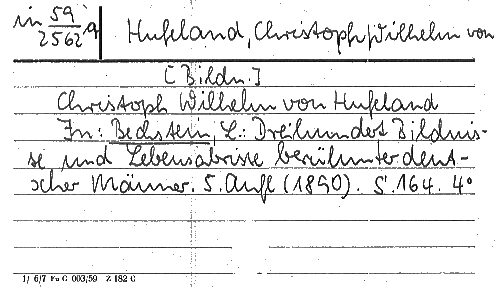 in 59/2562 a Hufeland, Christoph Wilhelm von
[Bildn.]
Christoph Wilhelm von Hufeland
In: Bechstein, L.: Dreihundert Bildnis-
se und Lebensabrisse berühmter deut-
scher Männer. 5. Aufl (1890). S. 164. 4°
1/ 6/7 Fu G 003/59 Z 182 C